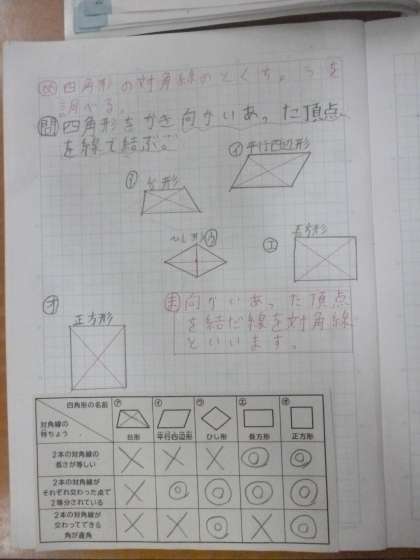 め 四角形の対角線のとくちょうを
調べる。
問 四角形をかき向かいあった頂点
を線で結ぶ。
㋐ 台形
㋑ 平行四辺形
ひし形 ㋒
㋓
方形
㋔
正方形
ま 向かいあった頂点
を結だ線を対角線
といいます。
四角形の名前
対角線の
特ちょう
㋐ ㋑ ㋒ ㋓ ㋔
台形 平行四辺形 ひし形 長方形 正方形
2本の対角線の
長さが等しい
× × × ◎ ◎
2本の対角線が
それぞれ交わった点で
2等分されている
× ◎ ◎ ◎ ◎
2本の対角線が
交わってできる
角が直角
× × ◎ × ◎